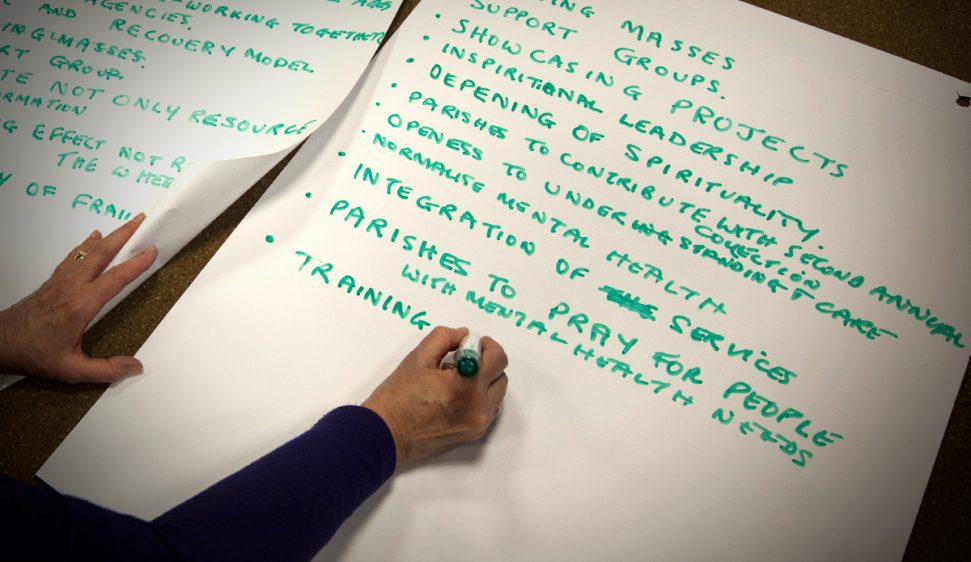 AGENCIES. WORKING TOGETHER
AND RECOVERY MODEL
MASSES.
GROUP.
NOT ONLY RESOURCE
EFFECT NOT
THE
OF
MASSES
SUPPORT GROUPS.
• SHOWCASING PROJECTS
• INSPIRITIONAL LEADERSHIP
• DEPENING OF SPIRITUALITY.
• PARISHES TO CONTRIBUTE WITH SECOND ANNUAL
COLLECTION
OPENESS TO UNDERSTANDING & CARE
• NORMALISE MENTAL HEALTH
• INTEGRATION OF SERVICES
• PARISHES TO PRAY FOR PEOPLE
WITH MENTAL HEALTH NEEDS
• TRAINING